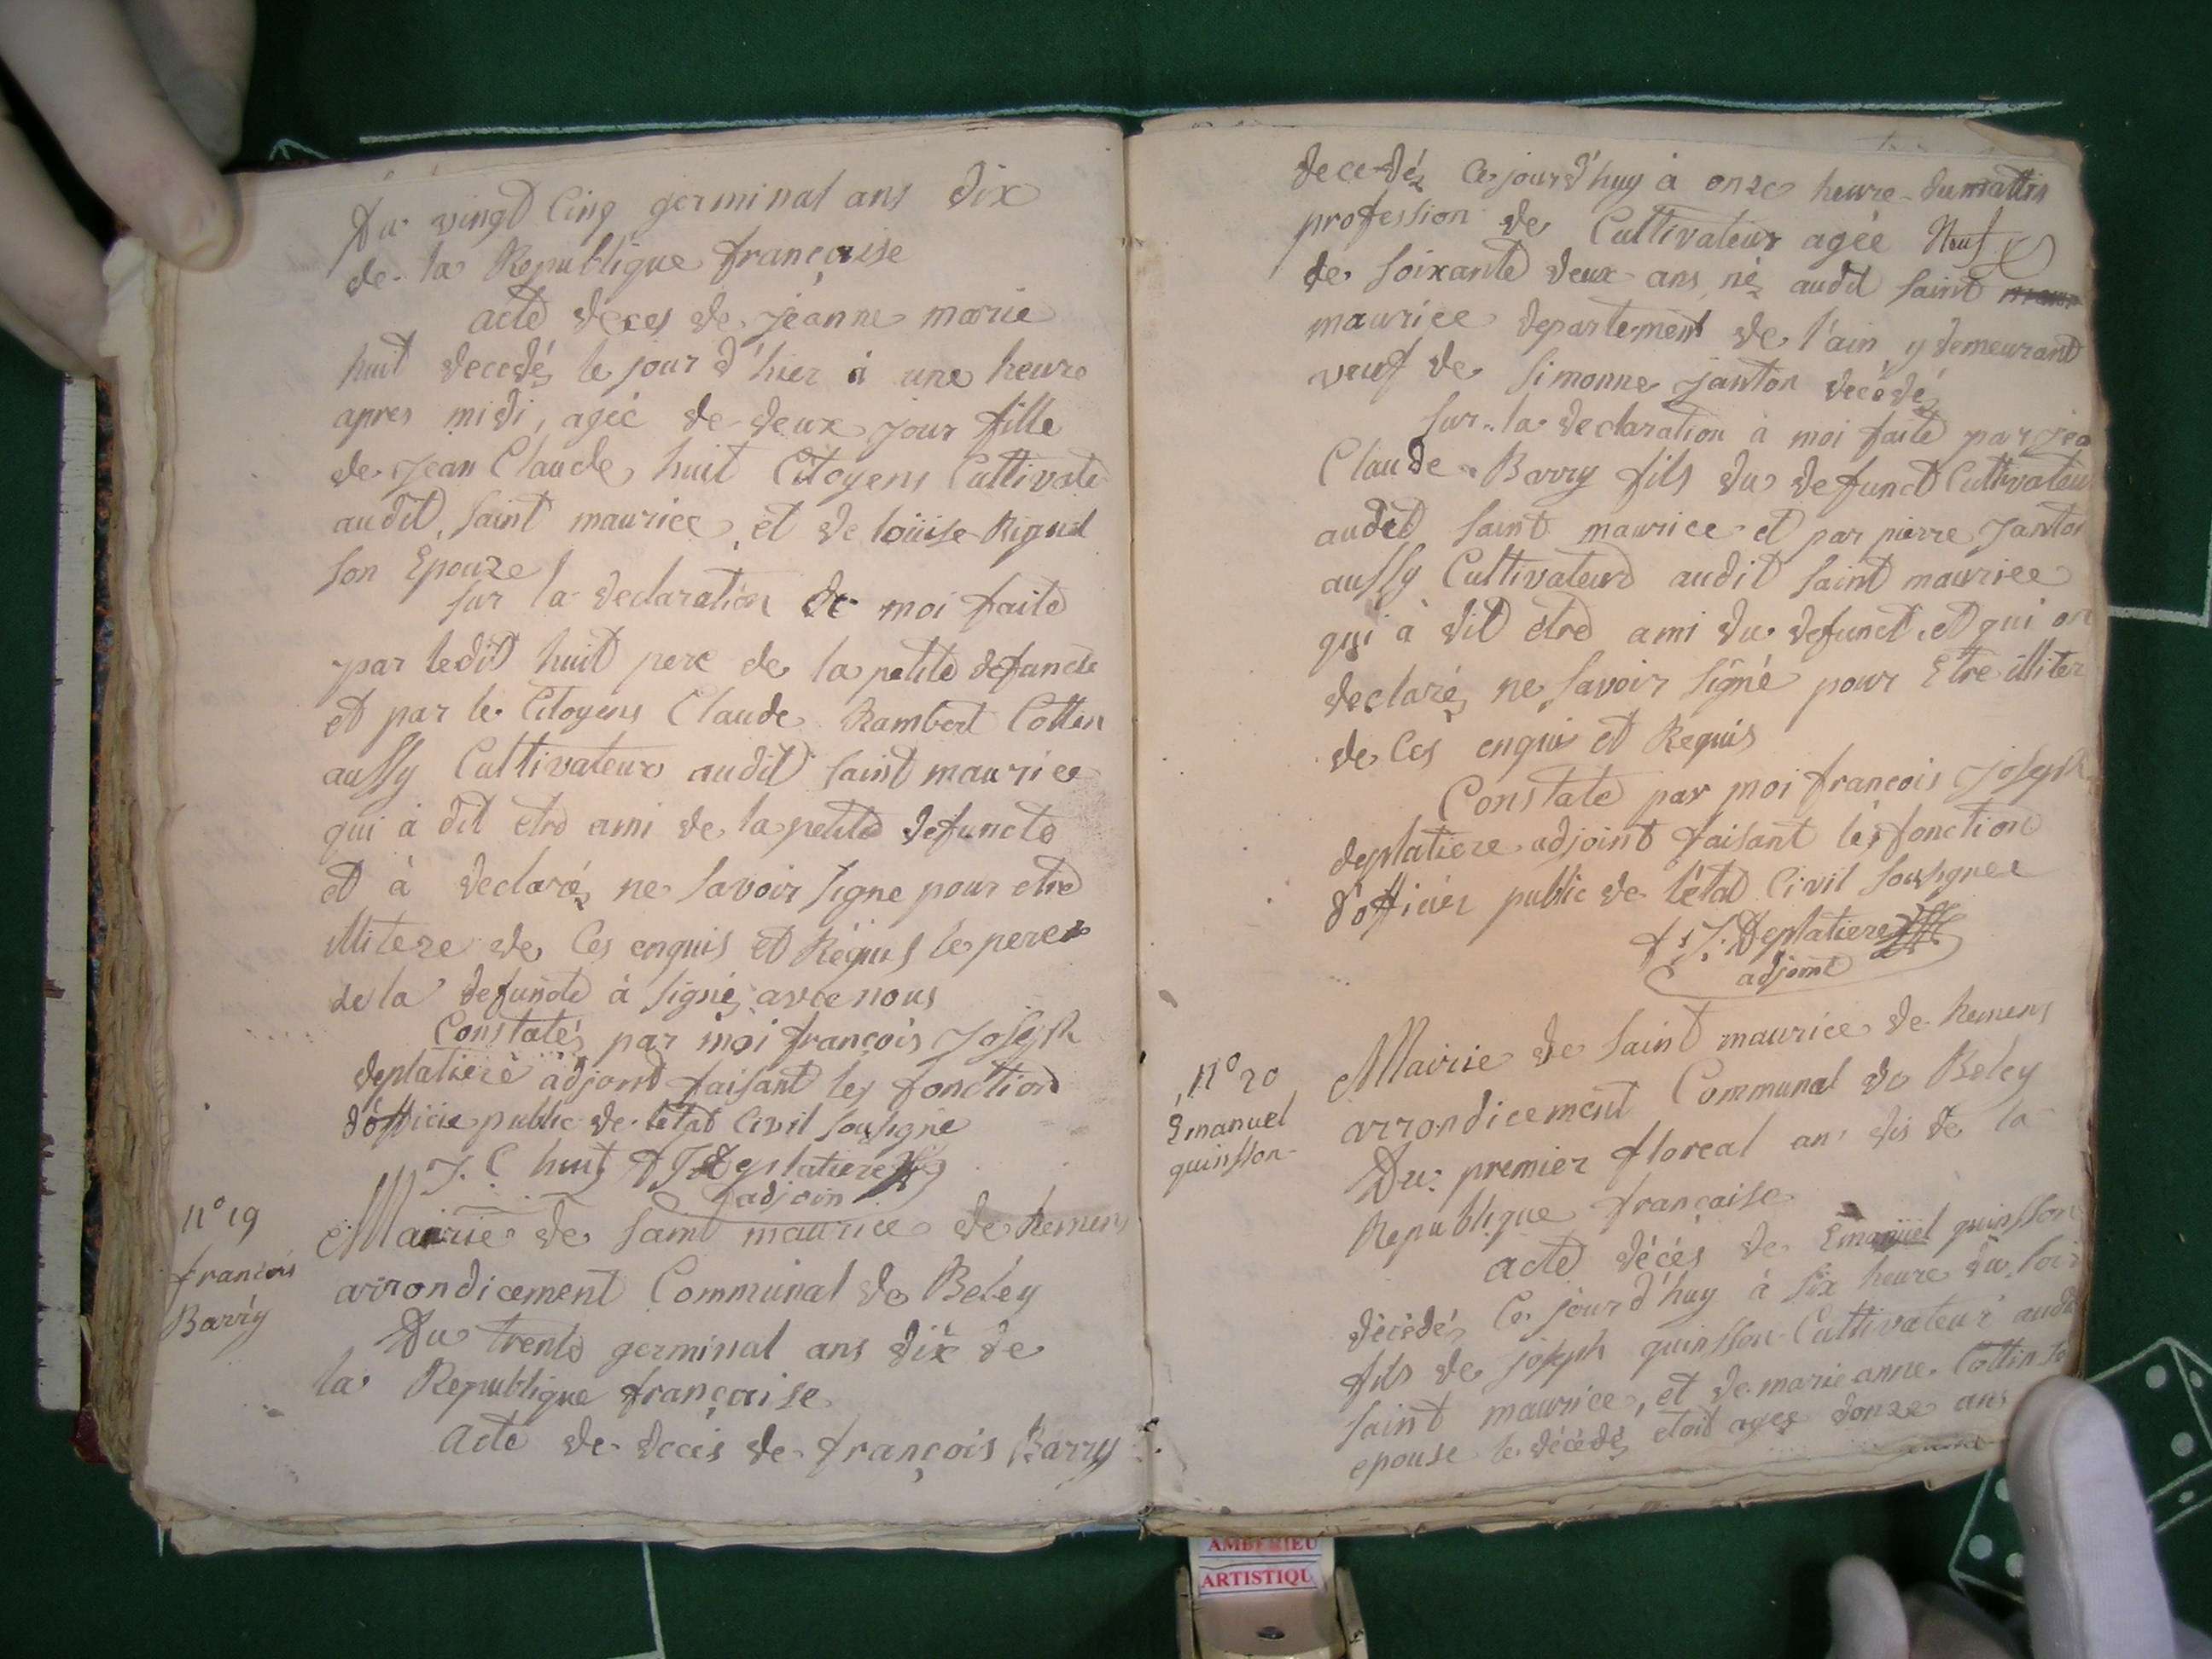 Du vingt Cinq germinal ans dix
de la Republique française
acte deces de jeanne marie
huit decedé le jour d'hier à une heure
apres midi, ageé de deux jour fille
de jean Claude huit Citoyens Cultivate
audit saint maurice, et de loüise Rignel
son Epouze
sur la declaration de moi faite
par ledit huit pere de la petite defuncte
et par le Citoyens Claude Rambert Cottin
aussy Cultivateur audit saint maurice
qui à dit etre ami de la petite defuncte
et à declaré ne savoir signe pour etre
illitere de Ces enquis et Réquis le pere
de la defuncte à signé avec nous
Constaté par moi françois Joseph
deplatiere adjoint faisant les fonction
d'officie public de letat Civil sousigne
J. C huit f J Deplatiere
adjoin
n° 19
francois
Barry
Mairie de saint maurice de Remens
arrondicement Communal de Beley
Du trente germinal ans dix de
la Republique française
Acte de decès de françois Barry
decedé Ce jourd'huy à onze heure du mattin
profession de Cultivateur ageé Neuf
de soixante deux ans, né audit saint
maurice departement de l'ain y demeurant
veuf de simonne janton decédé
sur la declaration à moi faite par jea
Claude Barry fils du defunct Cultivateur
audit saint maurice et par pierre Janton
aussy Cultivateur audit saint maurice
qui à dit etre ami du defunct et qui on
declaré ne savoir signé pour Etre illiter
de Ces enquis et Requis
Constate par moi francois Joseph
deplatiere adjoint faisant les fonction
d'officier public de l'etat Civil sousignee
f J. Deplatiere
adjoint
n° 20
Emanuel
quinsson
Mairie de saint maurice de Remens
arrondicement Communal de Beley
Du premier floreal an dis de la
Republique française
acte décés de Emanuel quinsson
décédé Ce jourd'huy à six heure du soir
fils de joseph quinsson Cultivateur audit
saint maurice, et de marie anne Cottin so
epouse le décédé etoit agez donze ans